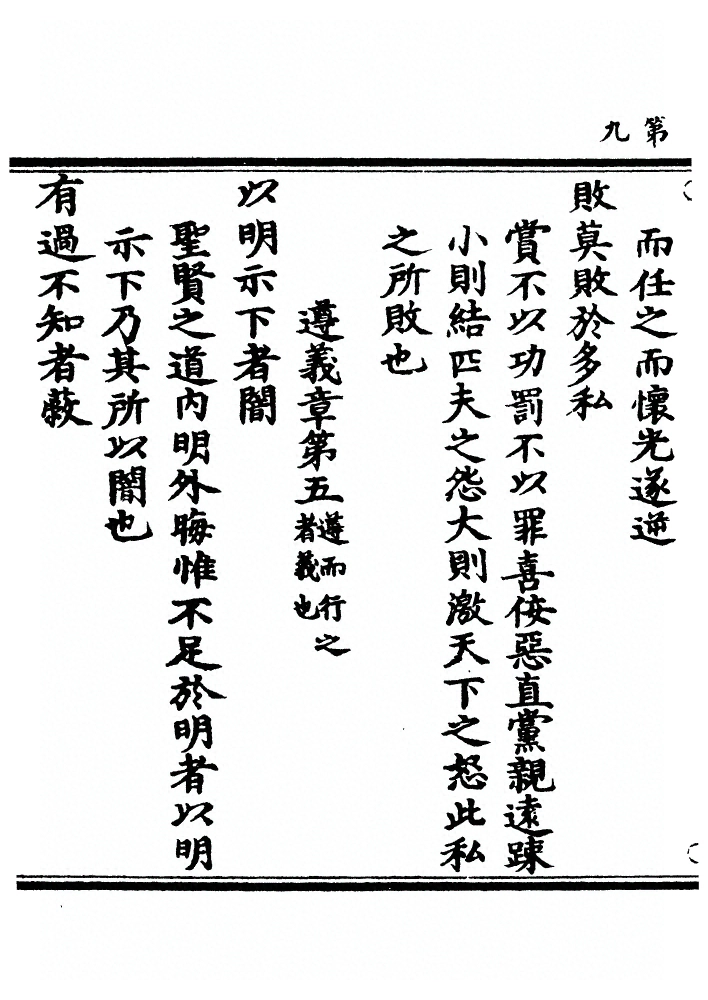 第九
而任之而懷光遂逆
敗莫敗於多私
賞不以功罰不以罪喜佞惡直黨親遠踈
小則結匹夫之怨大則激天下之怒此私
之所敗也
遵義章第五
遵而行之
者義也
以明示下者闇
聖賢之道內明外晦惟不足於明者以明
示下乃其所以闇也
有過不知者蔽